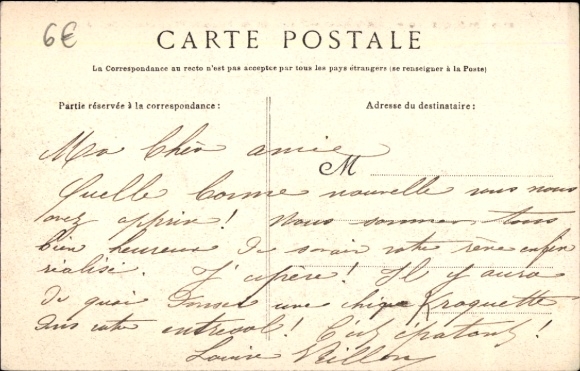 6€
CARTE POSTALE
La Correspondance au recto n'est pas acceptée par tous les pays étrangers (se renseigner à la Poste)
Partie réservée à la correspondance :
Adresse du destinataire :
M
Ma Chère amie
Quelle bonne nouvelle vous nous
avez appris ! Nous sommes tous
bien heureux de savoir votre rêve enfin
réalisé. J'espère ! Il y aura
de quoi danser une chique
dans votre entresol ! C'est épatant !
Louise